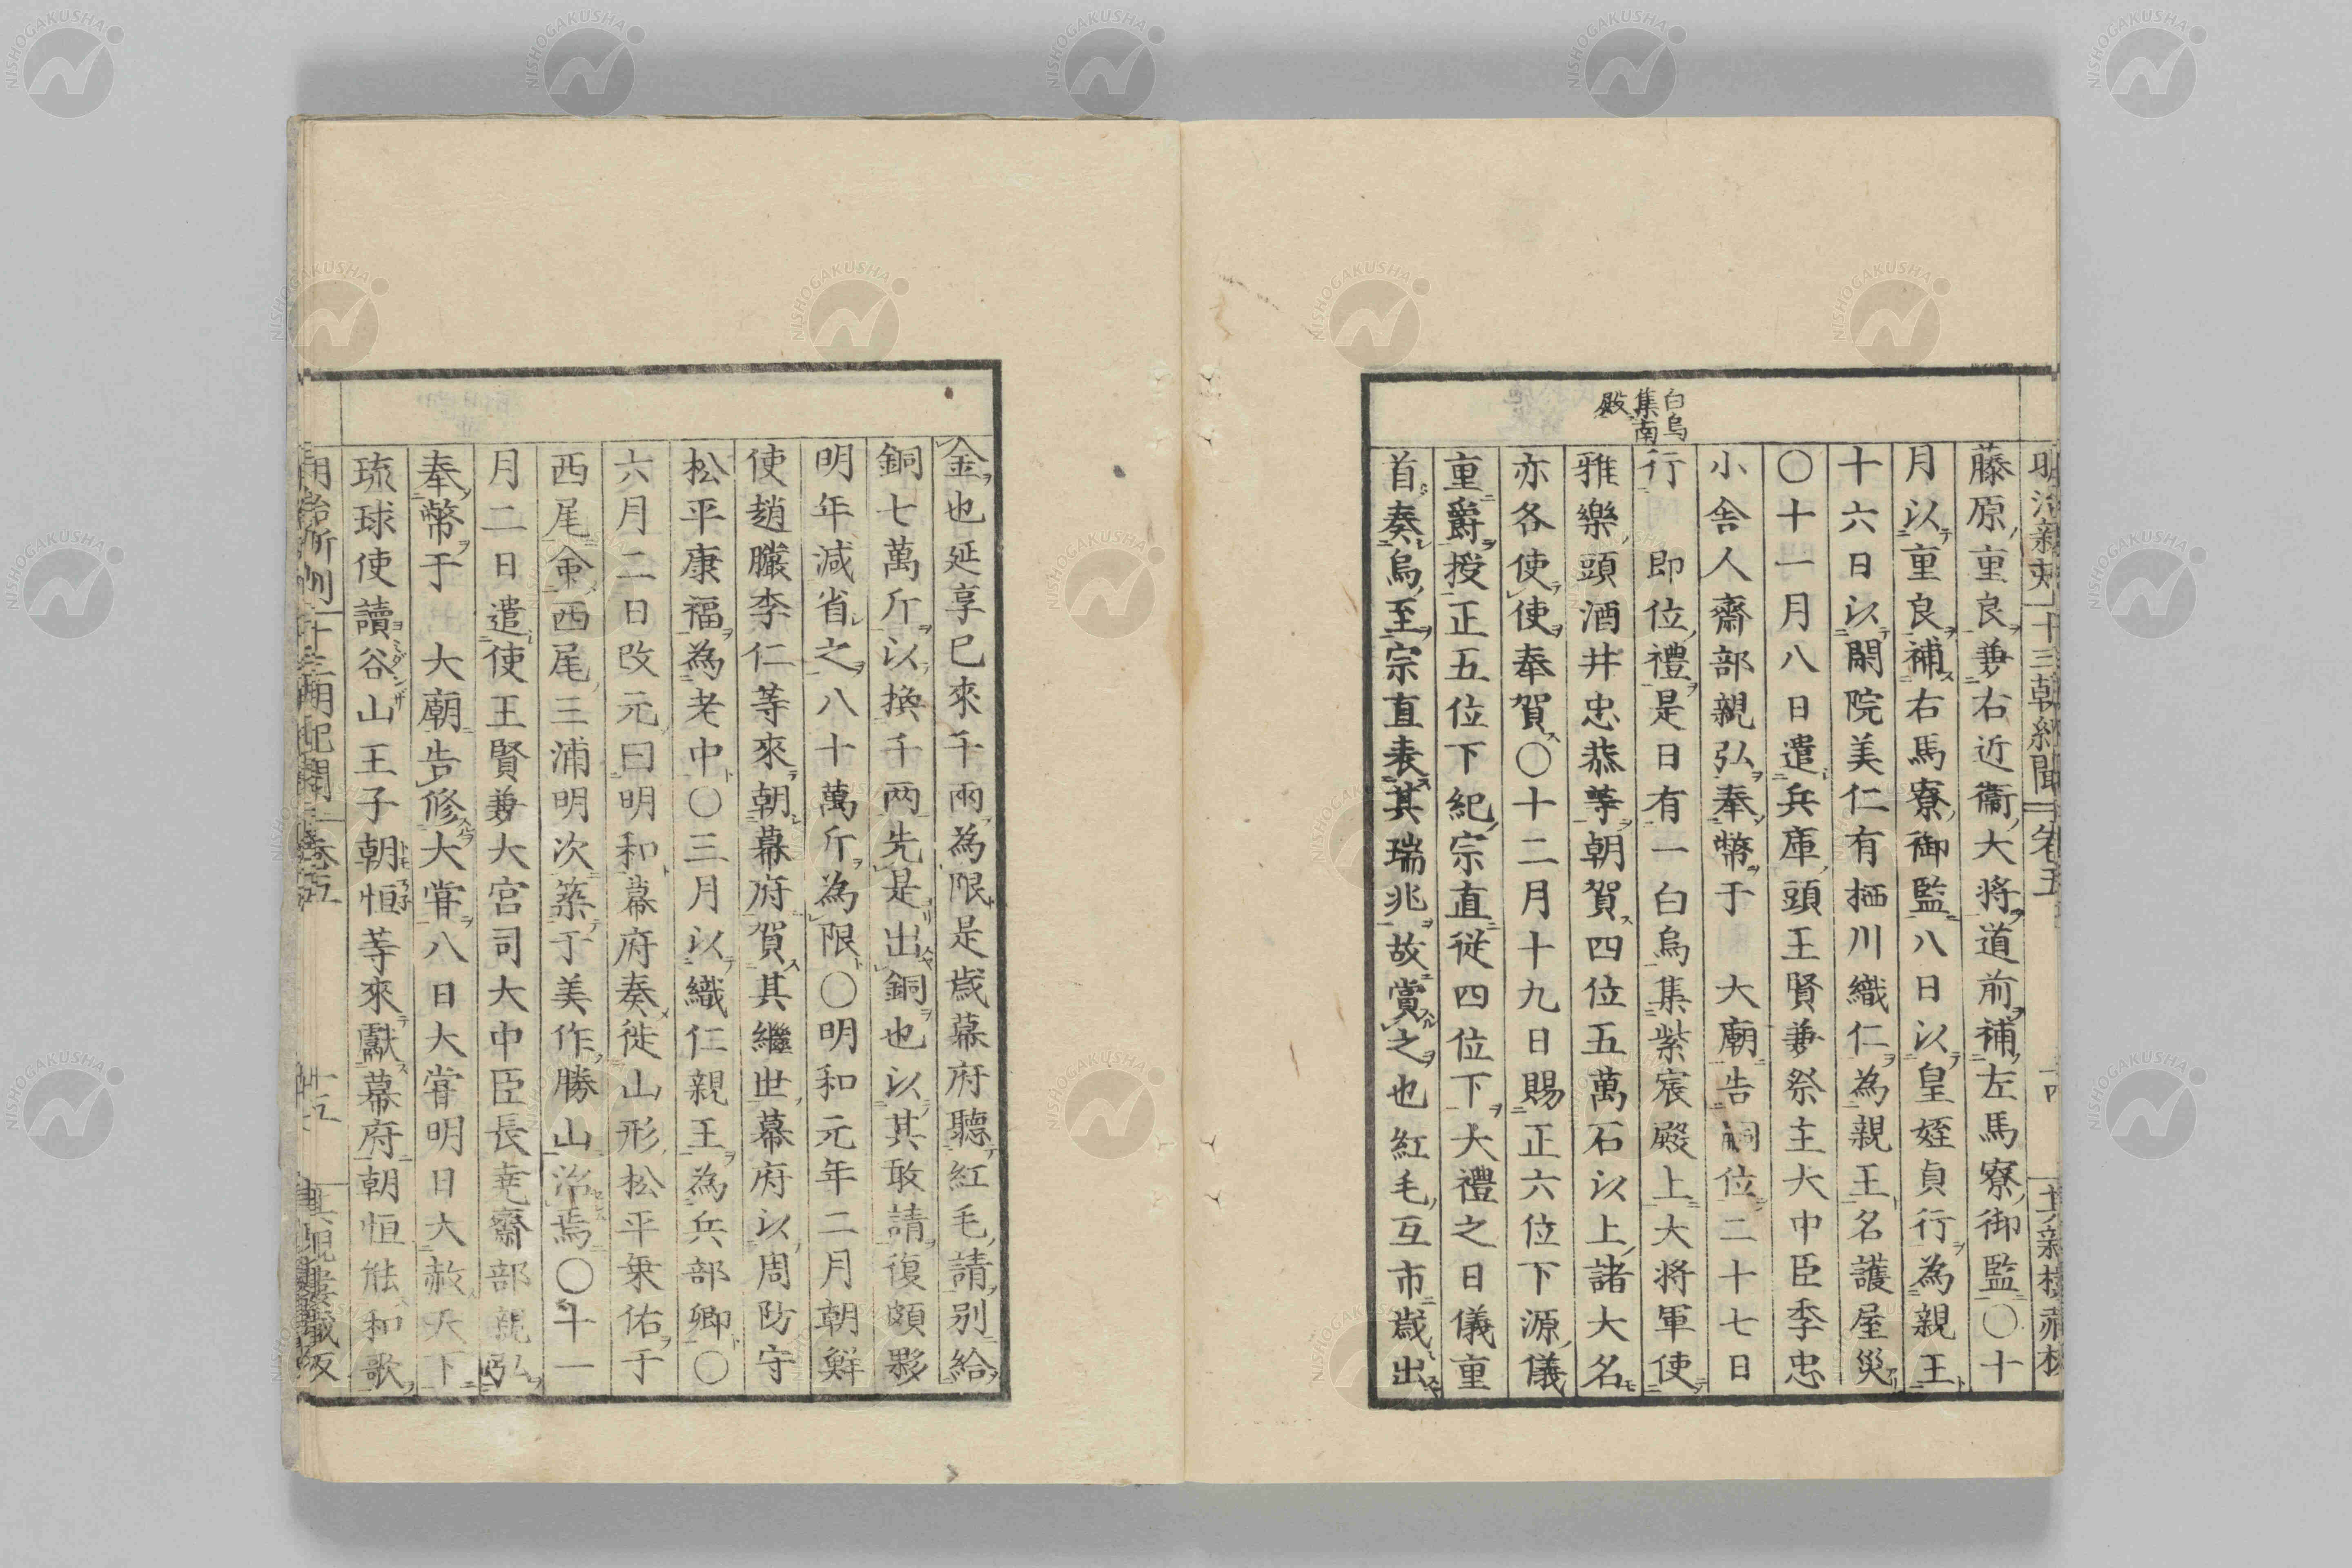 明治新刻 十三朝紀聞 卷五
藤原重良兼右近衞大将道前補左馬寮御監〇十
月以重良補右馬寮御監八日以皇姪貞行為親王
十六日以閑院美仁有栖川織仁為親王名護屋災
〇十一月八日遣兵庫頭王賢兼祭主大中臣季忠
小舎人齋部親弘奉幣于 大廟告嗣位二十七日
行 即位禮是日有一白烏集紫宸殿上大将軍使
雅樂頭酒井忠恭等朝賀四位五萬石以上諸大名
亦各使使奉賀〇十二月十九日賜正六位下源儀
重爵授正五位下紀宗直従四位下大禮之日儀重
首奏烏至宗直表其瑞兆故賞之也紅毛互市歳出
白烏
集南
殿
金也延享已來千兩為限是歳幕府聽紅毛請別給
銅七萬斤以換千両先是出銅也以其敢請復頗夥
明年減省之八十萬斤為限〇明和元年二月朝鮮
使趙曮李仁等來朝幕府賀其繼世幕府以周防守
松平康福為老中〇三月以織仁親王為兵部卿〇
六月二日改元曰明和幕府奏徙山形松平乗佑于
西尾命西尾三浦明次築于美作勝山治焉〇十一
月二日遣使王賢兼大宮司大中臣長堯齋部親弘
奉幣于 大廟告修大甞八日大甞明日大赦天下
琉球使讀谷山王子朝恒等來獻幕府朝恒能和歌
明治新刻 十三朝紀聞 卷五 十五